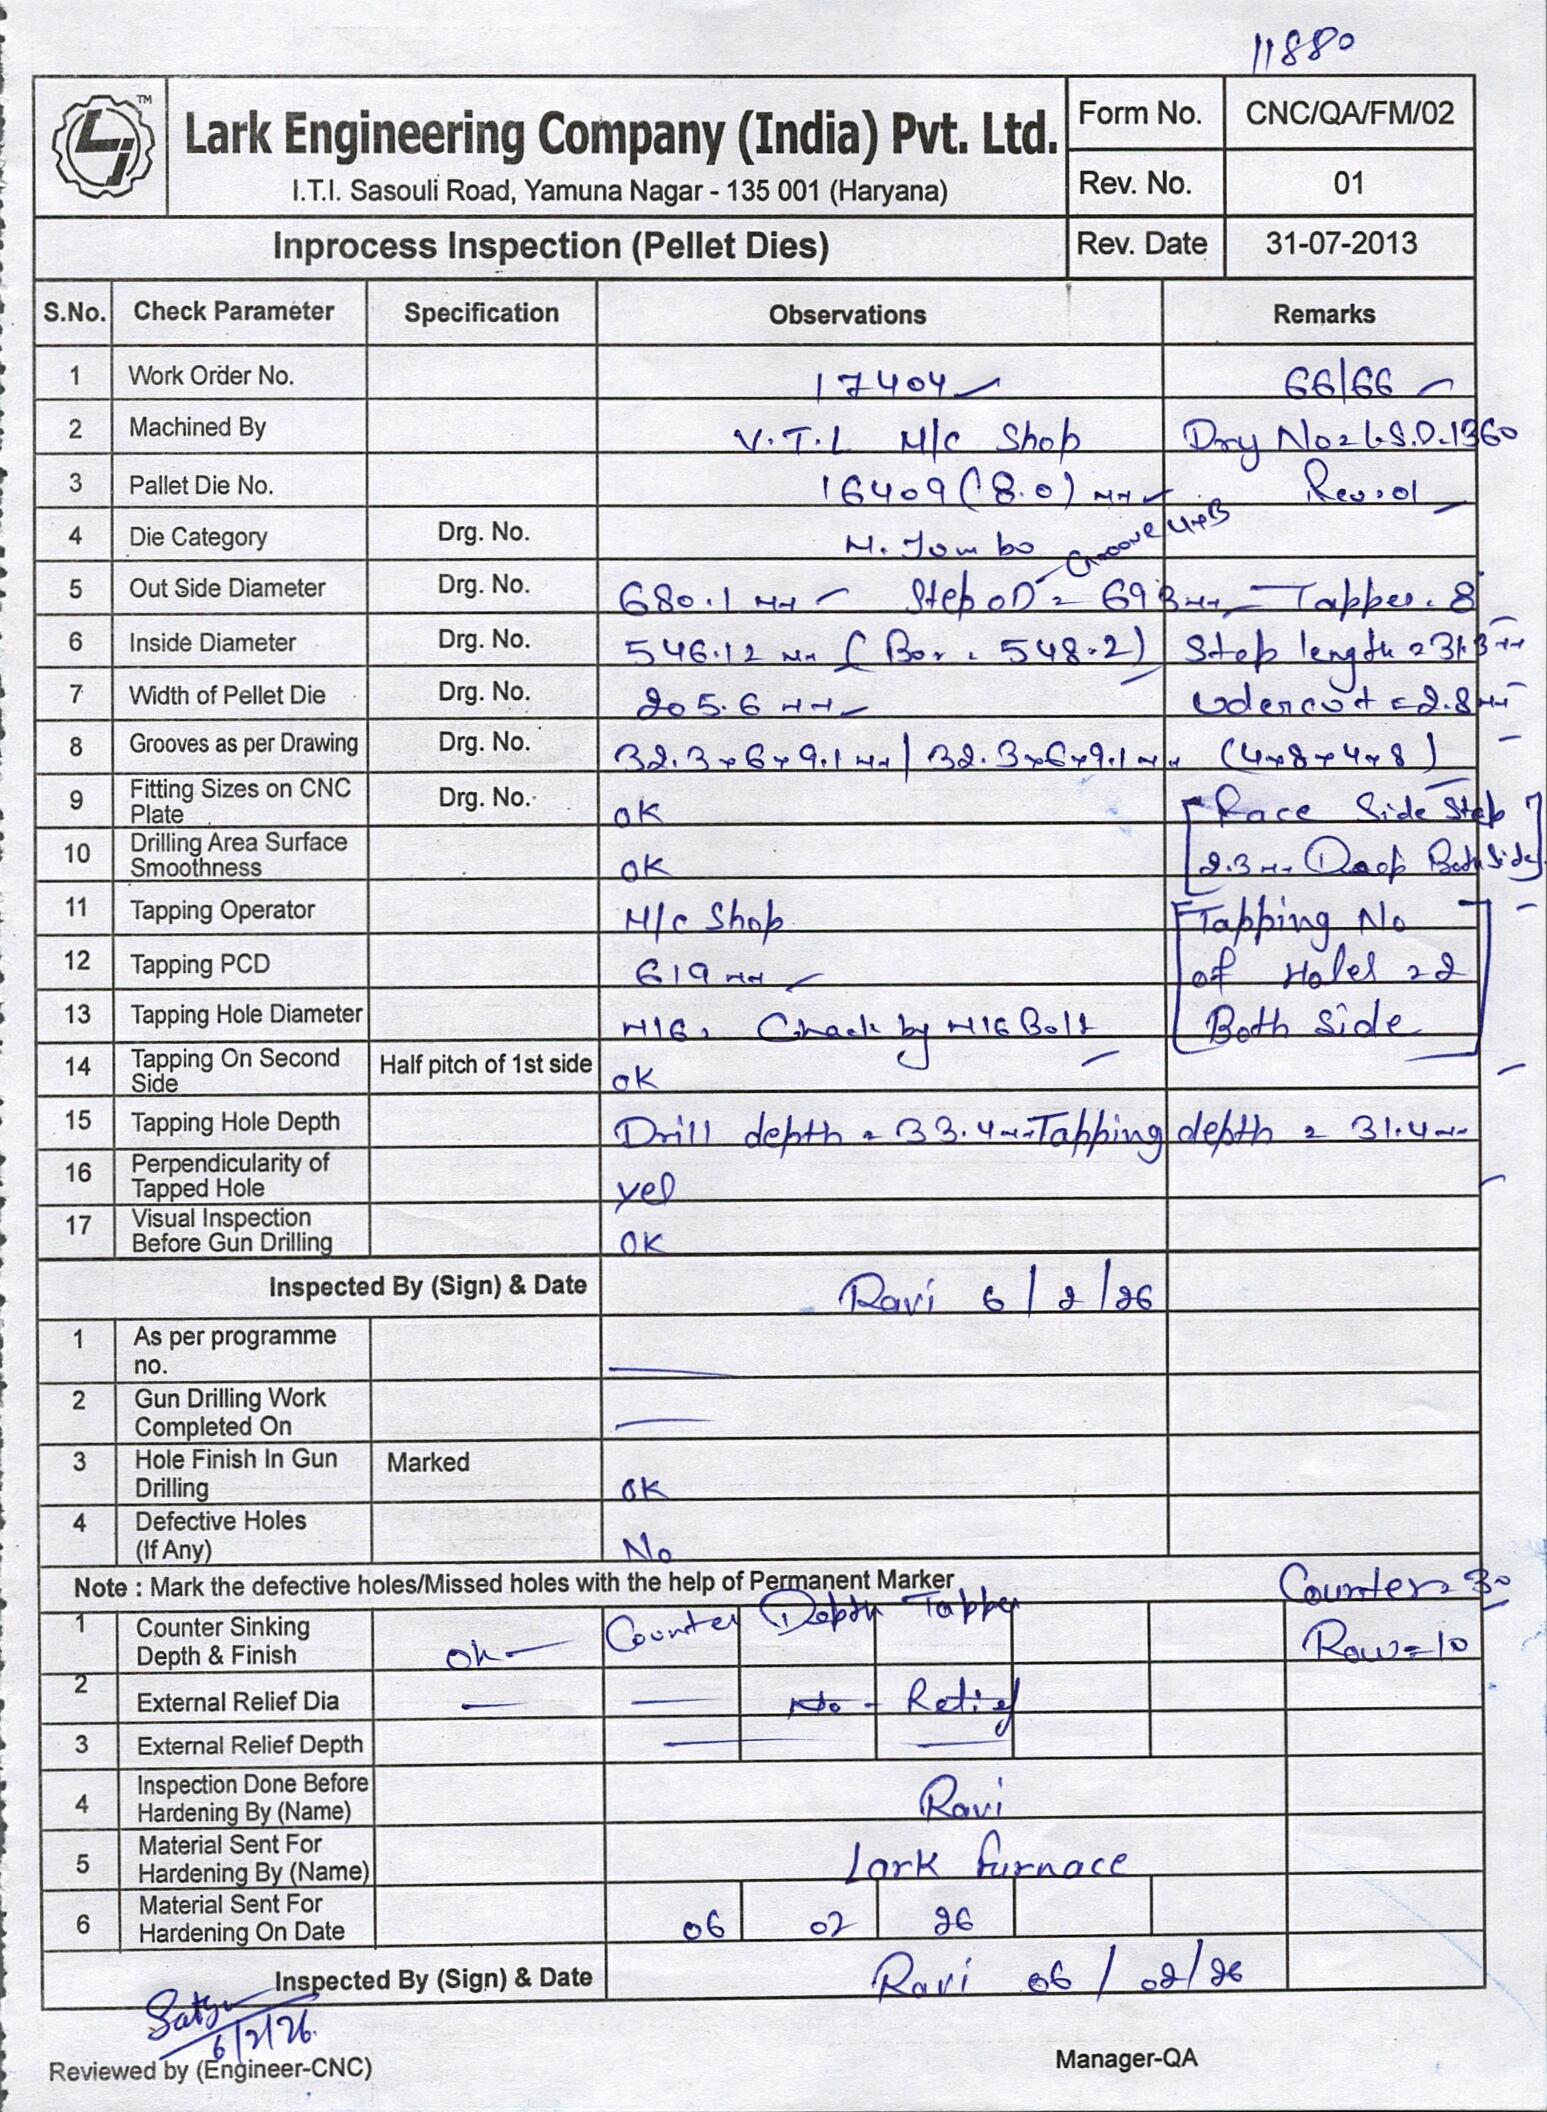 11880
TM
Lark Engineering Company (India) Pvt. Ltd.
I.T.I. Sasouli Road, Yamuna Nagar - 135 001 (Haryana)
Form No. CNC/QA/FM/02
Rev. No. 01
Inprocess Inspection (Pellet Dies) Rev. Date 31-07-2013
S.No. Check Parameter Specification Observations Remarks
1 Work Order No. 17404 66/66
2 Machined By V.T.L M/c Shop Drg No = L.S.D.1360
3 Pallet Die No. 16409 (8.0) mm Rev:01
4 Die Category Drg. No. M. Jumbo Groove
5 Out Side Diameter Drg. No. 680.1 mm Step OD = 693 mm Tapper. 8
6 Inside Diameter Drg. No. 546.12 mm (Bor. 548.2) Step length = 31.3 mm
7 Width of Pellet Die Drg. No. 205.6 mm Udercut = 2.8 mm
8 Grooves as per Drawing Drg. No. 32.3x6x9.1 mm / 32.3x6x9.1 mm (4x8x4x8)
9 Fitting Sizes on CNC Plate Drg. No. OK Face Side Step
10 Drilling Area Surface Smoothness OK 2.3 mm Deep Both Side
11 Tapping Operator M/c Shop Tapping No
12 Tapping PCD 619 mm of Holes = 2
13 Tapping Hole Diameter M16, Chack by M16 Bolt Both Side
14 Tapping On Second Side Half pitch of 1st side OK
15 Tapping Hole Depth Drill depth = 33.4 mm Tapping depth = 31.4 mm
16 Perpendicularity of Tapped Hole yes
17 Visual Inspection Before Gun Drilling OK
Inspected By (Sign) & Date Ravi 6/2/26
1 As per programme no.
2 Gun Drilling Work Completed On
3 Hole Finish In Gun Drilling Marked OK
4 Defective Holes (If Any) No
Note : Mark the defective holes/Missed holes with the help of Permanent Marker Counter = 30
1 Counter Sinking Depth & Finish OK Counter Depth Tapper Row = 10
2 External Relief Dia No - Relief
3 External Relief Depth
4 Inspection Done Before Hardening By (Name) Ravi
5 Material Sent For Hardening By (Name) Lark furnace
6 Material Sent For Hardening On Date 06 02 26
Inspected By (Sign) & Date Ravi 06/02/26
6/2/26
Reviewed by (Engineer-CNC) Manager-QA